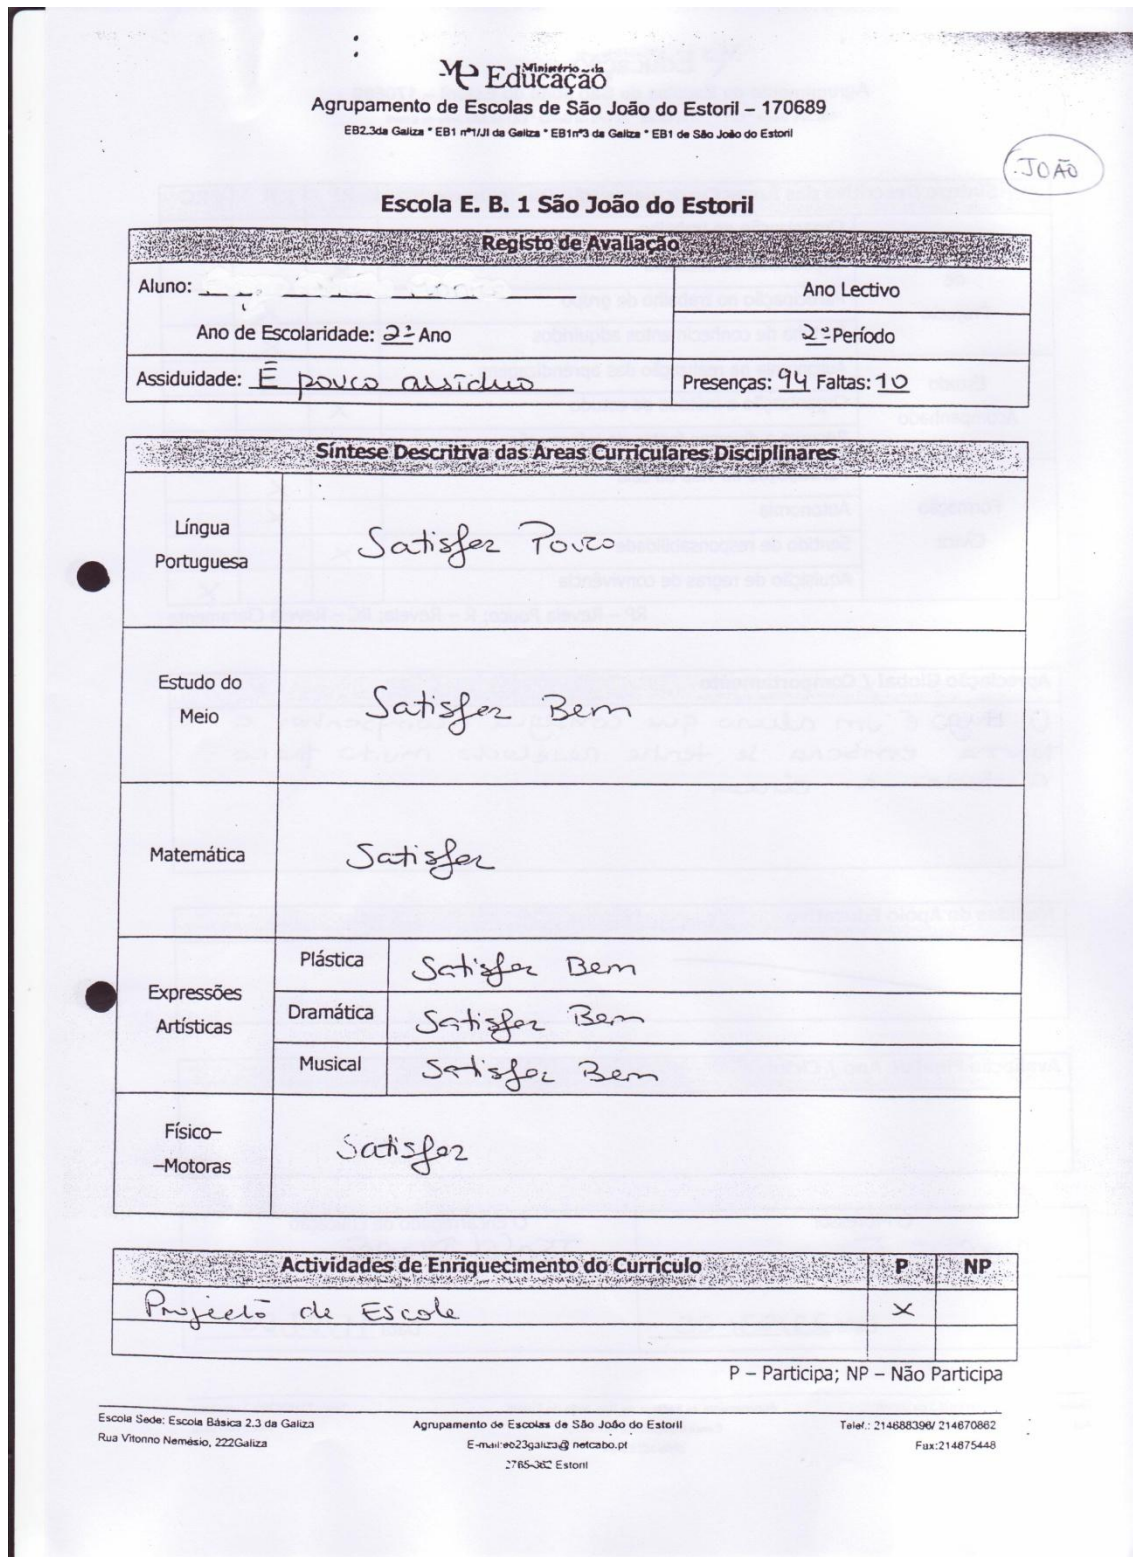 Ministério da
Educação
Agrupamento de Escolas de São João do Estoril – 170689
EB2.3da Galiza * EB1 nº1/JI da Galiza * EB1nº3 da Galiza * EB1 de São João do Estoril
JOÃO
Escola E. B. 1 São João do Estoril
Registo de Avaliação
Aluno:
Ano Lectivo
Ano de Escolaridade: 2º Ano
2º Período
Assiduidade: É pouco assíduo
Presenças: 94 Faltas: 10
Síntese Descritiva das Áreas Curriculares Disciplinares
Língua
Portuguesa
Satisfaz Pouco
Estudo do
Meio
Satisfaz Bem
Matemática
Satisfaz
Expressões
Artísticas
Plástica
Satisfaz Bem
Dramática
Satisfaz Bem
Musical
Satisfaz Bem
Físico–
–Motoras
Satisfaz
Actividades de Enriquecimento do Currículo
P
NP
Projecto de Escola
X
P – Participa; NP – Não Participa
Escola Sede: Escola Básica 2.3 da Galiza
Agrupamento de Escolas de São João do Estoril
Telef.: 214688396/ 214670862
Rua Vitorino Nemésio, 222Galiza
E-mail:eb23galiza@netcabo.pt
Fax:214675448
2765-362 Estoril